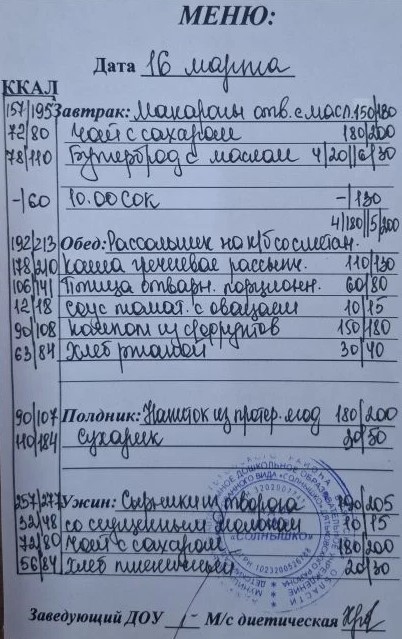 МЕНЮ:
Дата 16 марта
ККАЛ
157/195 Завтрак: Макароны отв. с масл. 150/180
72/80 Чай с сахаром 180/200
78/110 Бутерброд с маслом 4/20//6/30
-/60 10.00 сок -/130
4/180//5/200
192/213 Обед: Рассольник на к/б со сметан.
178/210 Каша гречневая рассыпч. 110/130
106/141 Птица отварн. порционн. 60/80
12/18 Соус томат. с овощами 10/15
90/108 Компот из сухофруктов 150/180
63/84 Хлеб ржаной 30/40
90/107 Полдник: Напиток из протер. ягод 180/200
110/184 Сухарик 30/50
257/277 Ужин: Сырники из творога 190/205
32/48 со сгущенным молоком 10/15
72/80 Чай с сахаром 180/200
56/84 Хлеб пшеничный 20/30
«СОЛНЫШКО»
Заведующий ДОУ М/с диетическая